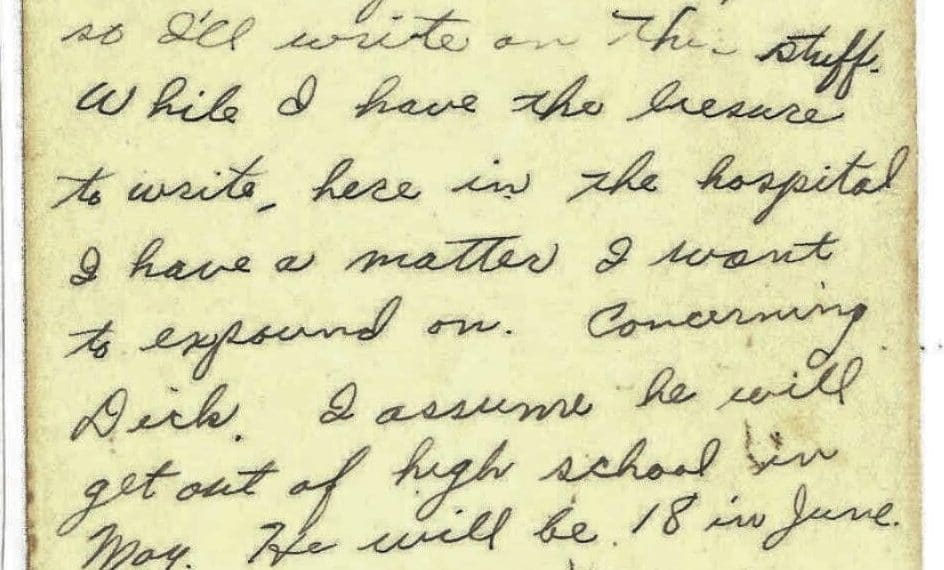 so I'll write on this stuff.
While I have the liesure
to write, here in the hospital
I have a matter I want
to expound on. Concerning
Dick. I assume he will
get out of high school in
May. He will be 18 in June.